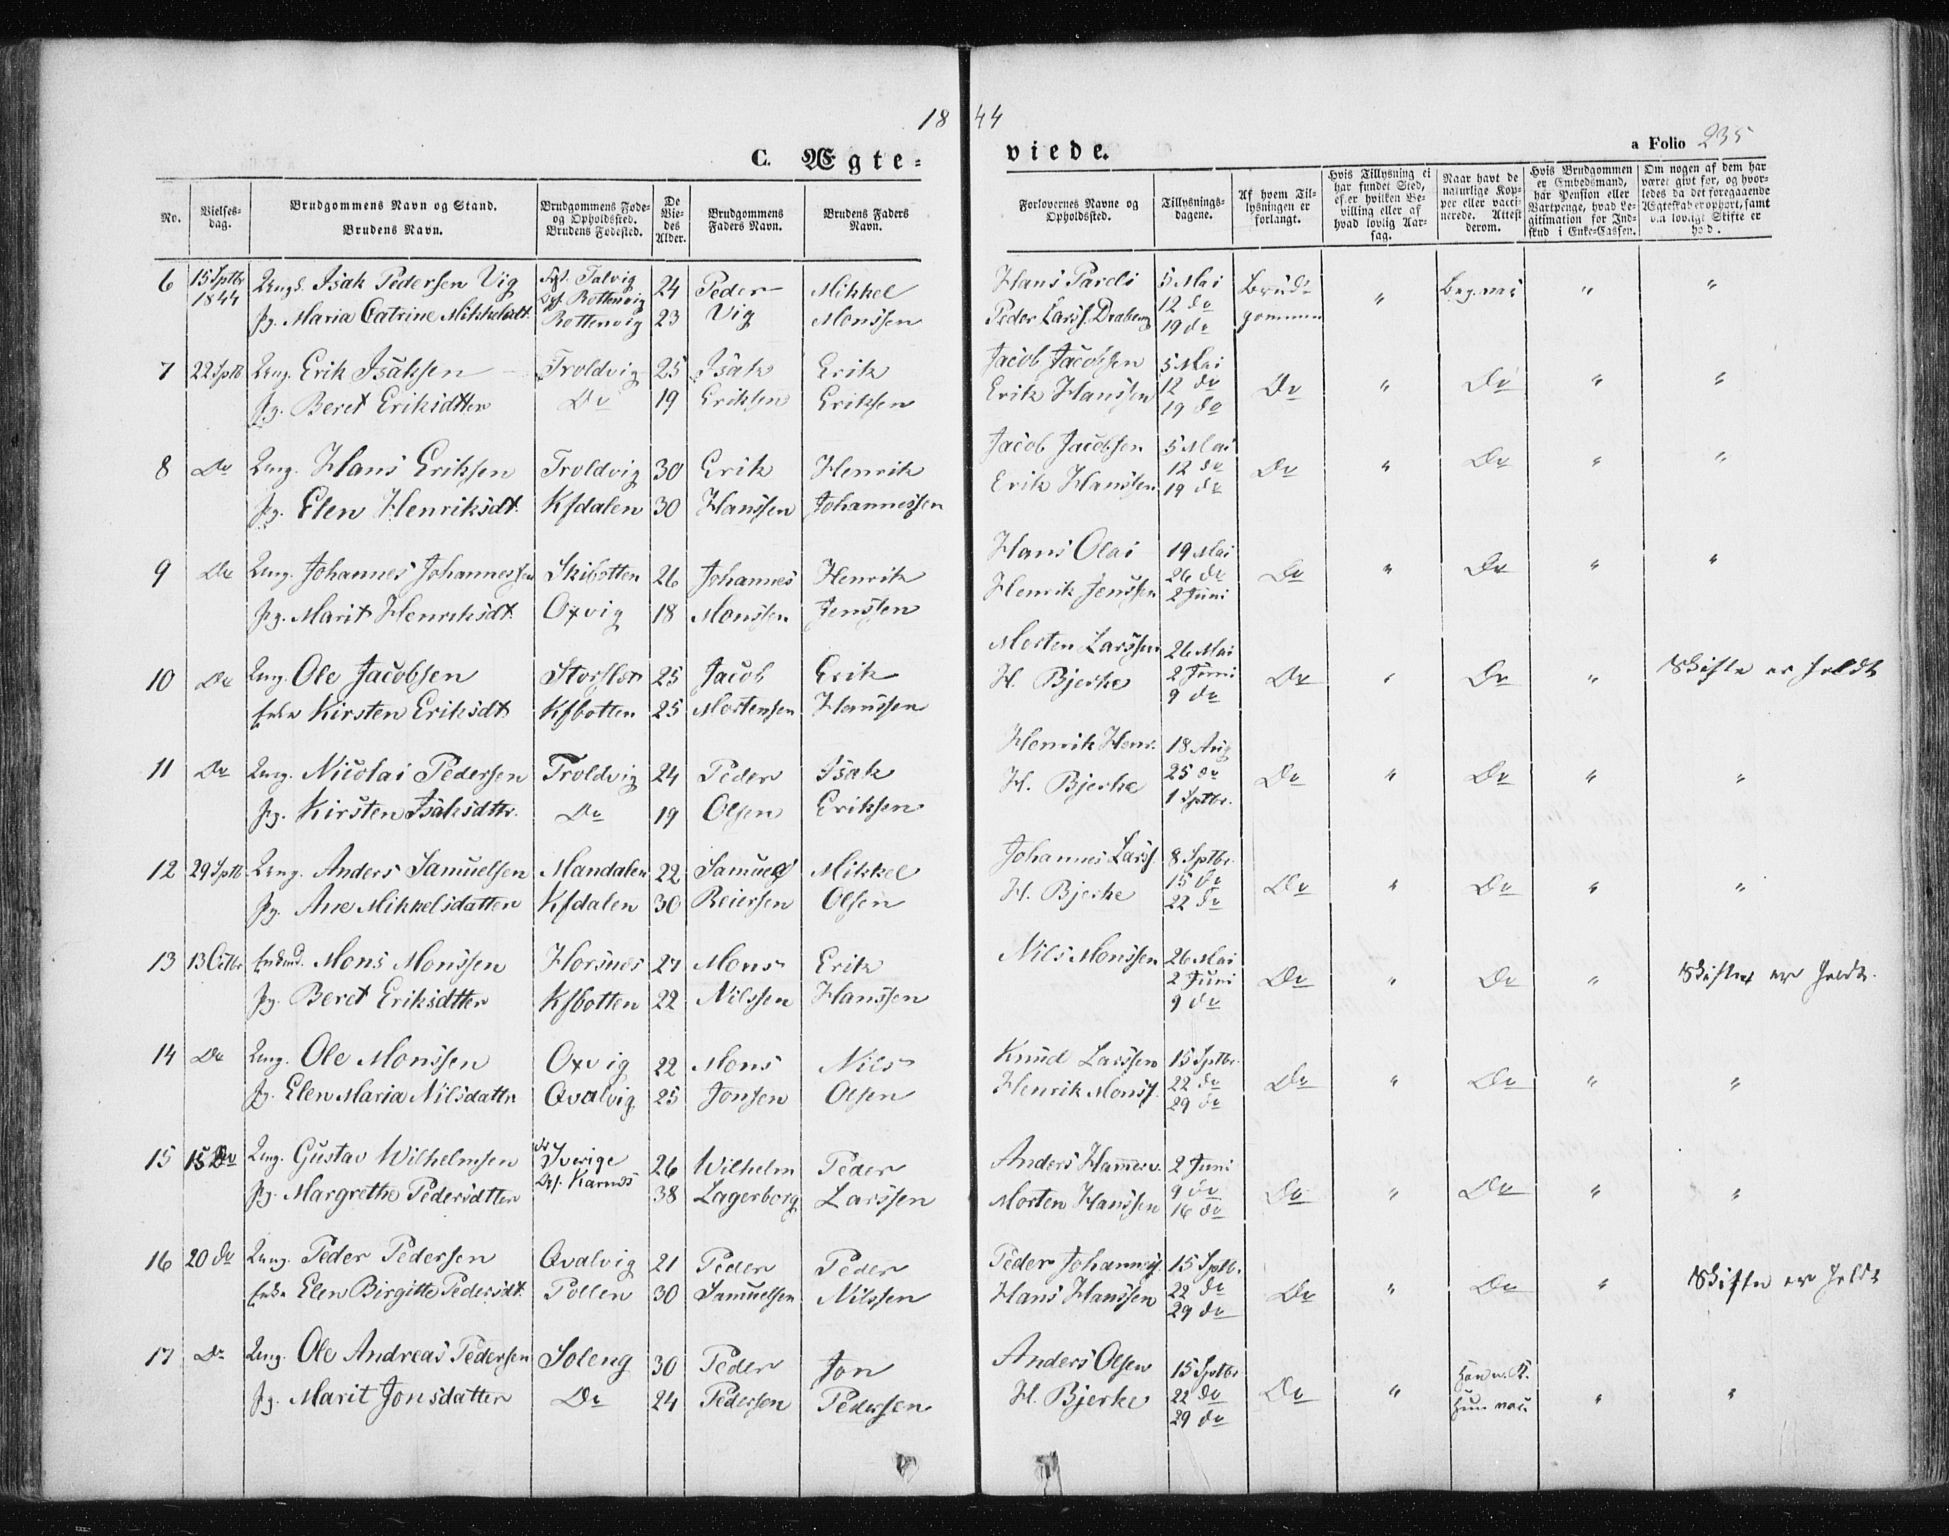 18 44
C. Ægte- viede. a Folio 235
No.
Vielses-dag.
Brudgommens Navn og Stand.
Brudens Navn.
Brudgommens Føde- og Opholdssted.
Brudens Fødested.
De Viedes Alder.
Brudgommens Faders Navn.
Brudens Faders Navn.
Forlovernes Navne og Opholdssted.
Tillysnings-dagene.
Af hvem Tillysningen er forlangt.
Hvis Tillysning ei har fundet Sted, efter hvilken Bevilling eller af hvad lovlig Aarsag.
Naar havt de naturlige Kopper eller vaccinerede. Attest derom.
Hvis Brudgommen er Embedsmand, har Pension eller Vartpenge, hvad Legitimation for Indskud i Enke-Cassen.
Om nogen af dem har været givt før, og hvorledes da det foregaaende Ægteskab er ophørt, samt om lovligt Skifte er hold.
6 15 Sptbr 1844 Ungk. Isak Pedersen Vig Fst. Talvig Ops. Rottenvig 24 Peder Vig Mikkel Monssen Hans Parels 5 Mai Brudgommen " Beg. vac " "
Pg. Maria Catrine Mikkelsdt. Rottenvig 23 Peder Larss. 12 do 19 do
7 22 Sptb Ung. Erik Isaksen Troldvig 25 Isak Eriksen Erik Eriksen Jacob Jacobsen 5 Mai Do " Do " "
Pg. Beret Eriksdtter Do 19 Erik Hanssen 12 do 19 do
8 Do Ung. Hans Eriksen Troldvig 30 Erik Hanssen Henrik Johannessen Jacob Jacobsen 5 Mai Do " Do " "
Pg. Elen Henriksdt. Kfdalen 30 Erik Hanssen 12 do 19 do
9 Do Ung. Johannes Johannessen Skibotten 26 Johannes Monssen Henrik Jenssen Hans Olai 19 Mai Do " Do " "
Pg. Marit Henriksdt. Oxvig 18 Henrik Jenssen 26 do 2 Juni
10 Do Ung. Ole Jacobsen Storslet 25 Jacob Mortensen Erik Hanssen Morten Larssen 26 Mai Do " Do " Skifte er holdt
Enke Kirsten Eriksdt Kfbotten 25 H. Bjerke 2 Juni 9 do
11 Do Ung. Nicolai Pedersen Troldvig 24 Peder Olsen Isak Eriksen Henrik Henr. 18 Aug Do " Do " "
Pg. Kirsten Isaksdttr. Do 19 H. Bjerke 25 do 1 Sptbr.
12 29 Sptb Ung. Anders Samuelsen Mandalen 22 Samuel Reiersen Mikkel Olsen Johannes Larss. 8 Sptbr. Do " Do " "
Pg. Ane Mikkelsdatter Kfdalen 30 H. Bjerke 15 do 22 do
13 13 Octbr Enkmd. Mons Monssen Horsnes 27 Mons Nilssen Erik Hanssen Nils Monssen 26 Mai Do " Do " Skiftet er holdt.
Pg. Beret Eriksdtter Kfbotten 22 2 Juni 9 do
14 Do Ung. Ole Monssen Oxvig 22 Mons Jonsen Nils Olsen Knud Larssen 15 Sptbr. Do " Do " "
Pg. Elen Maria Nilsdatter Qvalvig 25 Henrik Monss. 22 do 29 do
15 15 Do Ung. Gustav Wilhelmsen Sverige Ops. Karnes 26 Wilhelm Lagerborg Peder Larssen Anders 2 Juni Do " Do " "
Pg. Margrethe Pedersdtter 38 Morten Hanssen 9 do 16 do
16 20 do Ung. Peder Pedersen Qvalvig 21 Peder Samuelsen Peder Nilssen Peder Johanness. 15 Sptb. Do " Do " Skifte er holdt
Enke Elen Birgitte Pedersdt. Pollen 30 Hans Hanssen 22 do 29 do
17 Do Ung. Ole Andreas Pedersen Soleng 30 Peder Pedersen Jon Pedersen Anders Olsen 15 Sptbr Do " Han n. K. Hun vac. " "
Pg. Marit Jonsdatter Do 24 H. Bjerke 22 do 29 do